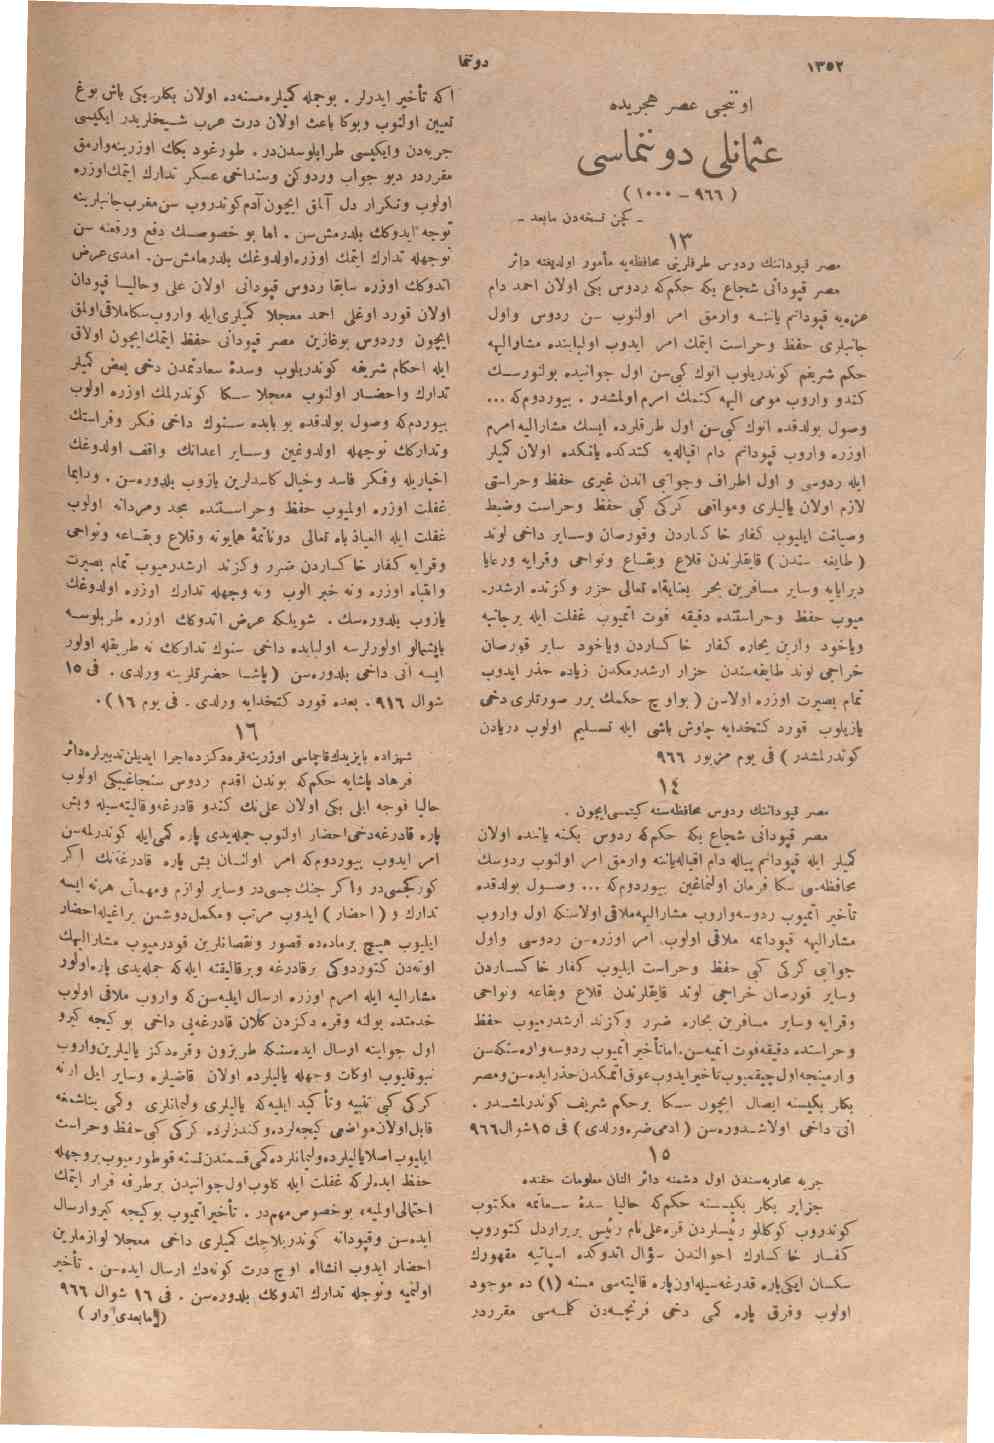 ١٣٥٢
دوتما
اوننجی عصر هجریده
عثمانلی دوننماسی
( ٩٦٦ – ١٠٠٠ )
ـ کچن نسخه‌دن مابعد ـ
١٣
مصر قپوداننك ردوس طرفلرینی محافظه‌یه مأمور اولدیغنه دائر
مصر قپودانی شجاع بکه حکم‌که ردوس بکی اولان احمد دام
عزه‌یه قپودانم یاننه وارمق امر اولنوب سن ردوس واول
جانبلری حفظ وحراست ایتمك امر ایدوب اولبابنده مشارالیه
حکم شریفم کوندریلوب انوك کبی‌سن اول جوانبده بولنورسك
کندو واروب مومی الیه کتمك امرم اولمشدر . بیوردم‌که ...
وصول بولدقده انوك کبی‌سن اول طرفلرده ایسك مشارالیه امرم
اوزره واروب قپودانم دام اقباله‌یه کتدکده یاننکده اولان کمیلر
ایله ردوسی و اول اطراف وجوانبی اندن غیری حفظ وحراستی
لازم اولان یالیلری ومواقعی کرکی کبی حفظ وحراست وضبط
وصیانت ایلیوب کفار خاکساردن وقورصان وسایر داخی لوند
( طایفه سندن ) قابقلرندن قلاع وبقاع ونواحی وقرایه ورعایا
وبرایایه وسایر مسافرین بحر بعنایةالله تعالی حزر وکزنده ارشدر.
میوب حفظ وحراستنده دقیقه فوت اتمیوب غفلت ایله برجانبه
ویاخود وارین بحاره کفار خاکساردن ویاخود سایر قورصان
خراجی لوند طایفه‌سندن حزار ارشدرمکدن زیاده حذر ایدوب
تمام بصیرت اوزره اولاسن ( بواوچ حکمك برر صورتلری دخی
یازیلوب قورد کتخدایه چاوش باشی ایله تسلیم اولوب دریادن
کوندرلمشدر ) فی یوم مزبور ٩٦٦
١٤
مصر قپوداننك ردوس محافظه‌سنه کیتمسی‌ایچون .
مصر قپودانی شجاع بکه حکم‌که ردوس بکنه یاننده اولان
کمیلر ایله قپودانم پیاله دام اقباله‌یاننه وارمق امر اولنوب ردوسك
محافظه‌سی سکا فرمان اولنماغین بیوردم‌که ... وصول بولدقده
تأخیر اتمیوب ردوسه‌واروب مشارالیهه‌ملاقی‌اولاسنکه اول واروب
مشارالیه قپودانمه ملاقی اولوب. امر اوزره‌سن ردوسی واول
جوانبی کرکی کبی حفظ وحراست ایلیوب کفار خاکساردن
وسایر قورصان خراجی لوند قابقلرندن قلاع وبقاعه ونواحی
وقرایه وسایر مسافرین بحاره ضرر وکزند ارشدرمیوب حفظ
وحراستده دقیقه‌فوت اتمیه‌سن.اماتأخیر اتمیوب ردوسه‌واره‌سنکه‌سن
وارمینجه‌اول‌چیقمیوب‌تأخیرایدوب‌عوق‌اتمکدن‌حذرایده‌سن‌ومصر
بکلر بکیسنه ایصال ایچون سکا برحکم شریف کوندرلمشدر .
انی داخی اولاشدوره‌سن ( ادمی‌ضره‌ورلدی ) فی ١٥شوال٩٦٦
١٥
جربه محاربه‌سندن اول دشمنه دائر النان معلومات حقنده
جزایر بکلر بکیسنه حکم‌که حالیا سدۀ سعاتمه مکتوب
کوندروب کوکللو رئیسلردن قره‌علی‌نام رئیس بربراردل کتوروب
کفار خاکسارك احوالندن سؤال اتدوکده اسپانیه مقهورك
سکسان ایکی‌پاره قدرغه‌سیله‌اون‌پاره قالیته‌سی مسنه (١) ده موجود
اولوب وقرق پاره کمی دخی فرنچه‌دن کلمه‌سی مقرردر
اکه تأخیر ایدرلر . بوجمله کمیلره‌مسنه‌ده اولان بکلر بکی باش بوغ
تعیین اولنوب وبوکا باعث اولان درت عرب شیخلریدر ایکیسی
جربه‌دن وایکیسی طرابلوسدن‌در . طورغود بکك اوزرینه‌وارمق
مقرردر دیو جواب وردوکن وسنداخی عسکر تدارك ایتمك‌اوزره
اولوب وتکرار دل آلمق ایچون‌آدم‌کوندروب سن‌مغرب‌جانبلرینه
توجه‌ایدوکك بلدرمش‌سن . اما بو خصوصك دفع ورفعنه سن
نوجهله تدارك ایتمك اوزره‌اولدوغك بلدرمامش‌سن. امدی‌عرض
اتدوکك اوزره سابقا ردوس قپودانی اولان علی وحالیا قپودان
اولان قورد اوغلی احمد معجلا کمیلری‌ایله واروب‌سکاملاقی‌اولمق
ایچون وردوس بوغازین مصر قپودانی حفظ ایتمك‌ایچون اولاق
ایله احکام شریفه کوندریلوب وسدۀ سعادتمدن دخی بعض کمیلر
تدارك واحضار اولنوب معجلا سکا کوندرلمك اوزره اولوب
بیوردم‌که وصول بولدقده بو بابده سنوك داخی فکر وفراستك
وتدارکك نوجهله اولدوغین وسایر اعدانك واقف اولدوغك
اخباریله وفکر فاسد وخیال کاسدلرین یازوب بلدوره‌سن . ودایما
غفلت اوزره اولمیوب حفظ وحراستنده مجد ومردانه اولوب
غفلت ایله العیاذ بالله تعالی دوناتمۀ همایونه وقلاع وبقاعه ونواحی
وقرایه کفار خاکساردن ضرر وکزند ارشدرمیوب تمام بصیرت
وانتباه اوزره ونه خبر الوب ونه وجهله تدارك اوزره اولدوغك
یازوب بلدوره‌سك . شویلکه عرض اتدوکك اوزره طربلوسه
یاپشمالو اولورلرسه اولبابده داخی سنوك تدارکك نه طریقله اولور
ایسه انی داخی بلدوره‌سن ( پاشا حضرتلرینه ورلدی . فی ١٥
شوال ٩١٦ . بعده قورد کتخدایه ورلدی . فی یوم ١٦ ) .
١٦
شهزاده بایزیدك‌قاچماسی اوزرینه‌قره‌دکزده‌اجرا ایدیلن‌تدبیرلره‌دائر
فرهاد پاشایه حکم‌که بوندن اقدم ردوس سنجاغبکی اولوب
حالیا قوجه ایلی بکی اولان علی‌نك کندو قادرغه‌وقالیته‌سیله وبش
پاره قادرغه‌دخی‌احضار اولنوب جمله‌یدی پاره کمی‌ایله کوندرلمه‌سن
امر ایدوب بیوردم‌که امر اولنان بش پاره قادرغه‌نك اکر
کورکجسی‌در واکر جنك‌جسی‌در وسایر لوازم ومهماتی هرنه ایسه
تدارك و ( احضار ) ایدوب مرتب ومکمل‌دوشمن یراغیله‌احضار
ایلیوب هیچ برماده‌ده قصور ونقصانلرین قودرمیوب مشارالیهك
اونه‌دن کتوردوکی برقادرغه وبرقالیقته ایله‌که جمله‌یدی پاره‌اولور
مشارالیه ایله امرم اوزره ارسال ایلیه‌سن‌که واروب ملاقی اولوب
خدمتده بولنه وقره دکزدن کلان قادرغه‌یی داخی بو کیجه کیرو
اول جوابنه ارسال ایده‌سنکه طربزون وقره‌دکز یالیلرین‌واروب
نیوقلیوب اوکات وجهله یالیلرده اولان قاضیلره وسایر ایل ارنه
کرکی کبی تنبیه وتأکید ایلیه‌که یالیلری ولیمانلری وکمی یناشمغه
قابل‌اولان‌مواضی کیجه‌لرده‌وکندزلرده کرکی کبی‌حفظ وحراست
ایلیوب اصلایالیلرده‌ولیمانلرده‌کمی‌قسمندن‌نسنه قوطورمیوب‌بروجهله
حفظ ایده‌لرکه غفلت ایله کلوب‌اول‌جوانبدن برطرفه فرار ایتمك
احتمالی‌اولمیه، بوخصوص‌مهم‌در . تأخیراتمیوب بوکیجه کیروارسال
ایده‌سن وقپودانه کوندریلاجك کمیلری داخی معجلا لوازملرین
احضار ایدوب انشاالله اوچ درت کونه‌دك ارسال ایده‌سن . تأخیر
اولنمیه ونوجله تدارك اتدوکك بلدوره‌سن . فی ١٦ شوال ٩٦٦
( مابعدی وار )